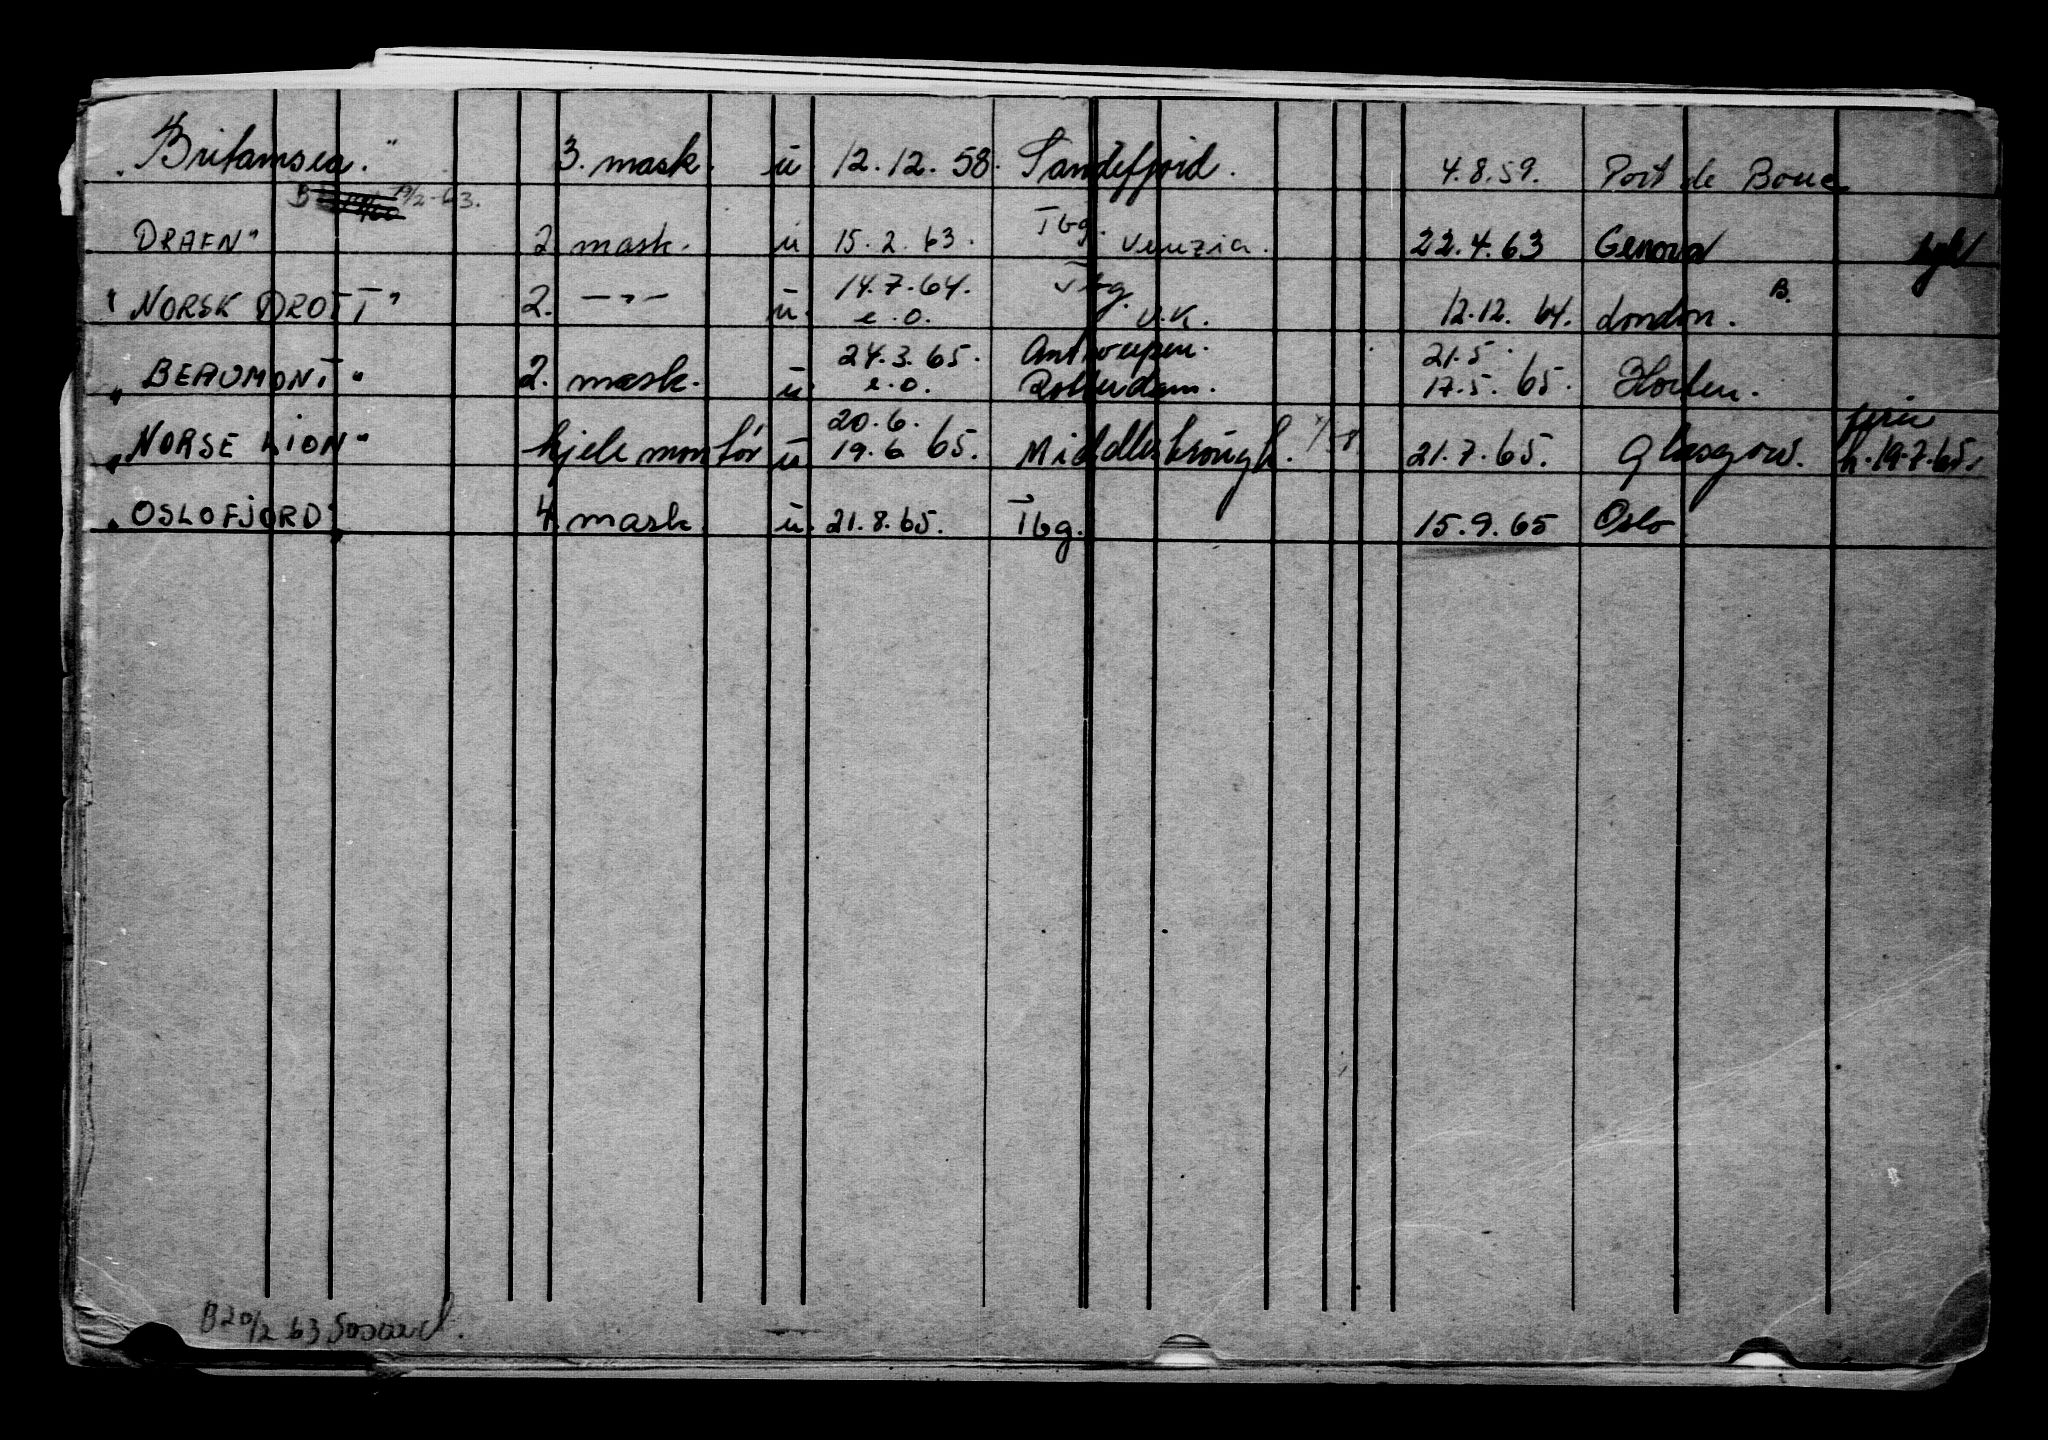 "Britamsea." 3. mask. ü 12.12.58. Sandefjord. 4.8.59. Port de Bouc
B 19/2-63.
DRAFN" 2 mask. ü 15.2.63. Tbg. Venezia. 22.4.63 Genova
"NORSK DROTT" 2. —"— ü. 14.7.64. e.o. Tbg. U.K. 12.12.64. London. B.
"BEAUMONT" 2. mask. ü 24.3.65. e.o. Antwerpen. Rotterdam. 21.5. 17.5.65.
"NORSE LION" kjelemontör ü 20.6. 19.6 65. Middlesbrough. 21.7.65. Glasgow. ferie h.19.7.65.
"OSLOFJORD" 4 mask. ü. 21.8.65. Tbg. 15.9.65 Oslo
B20/2 63